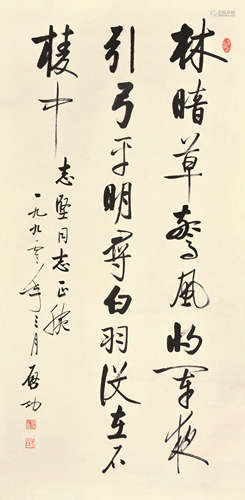 林暗草惊风将军夜
引弓平明寻白羽没在石
棱中
志坚同志正腕
一九九零年三月启功